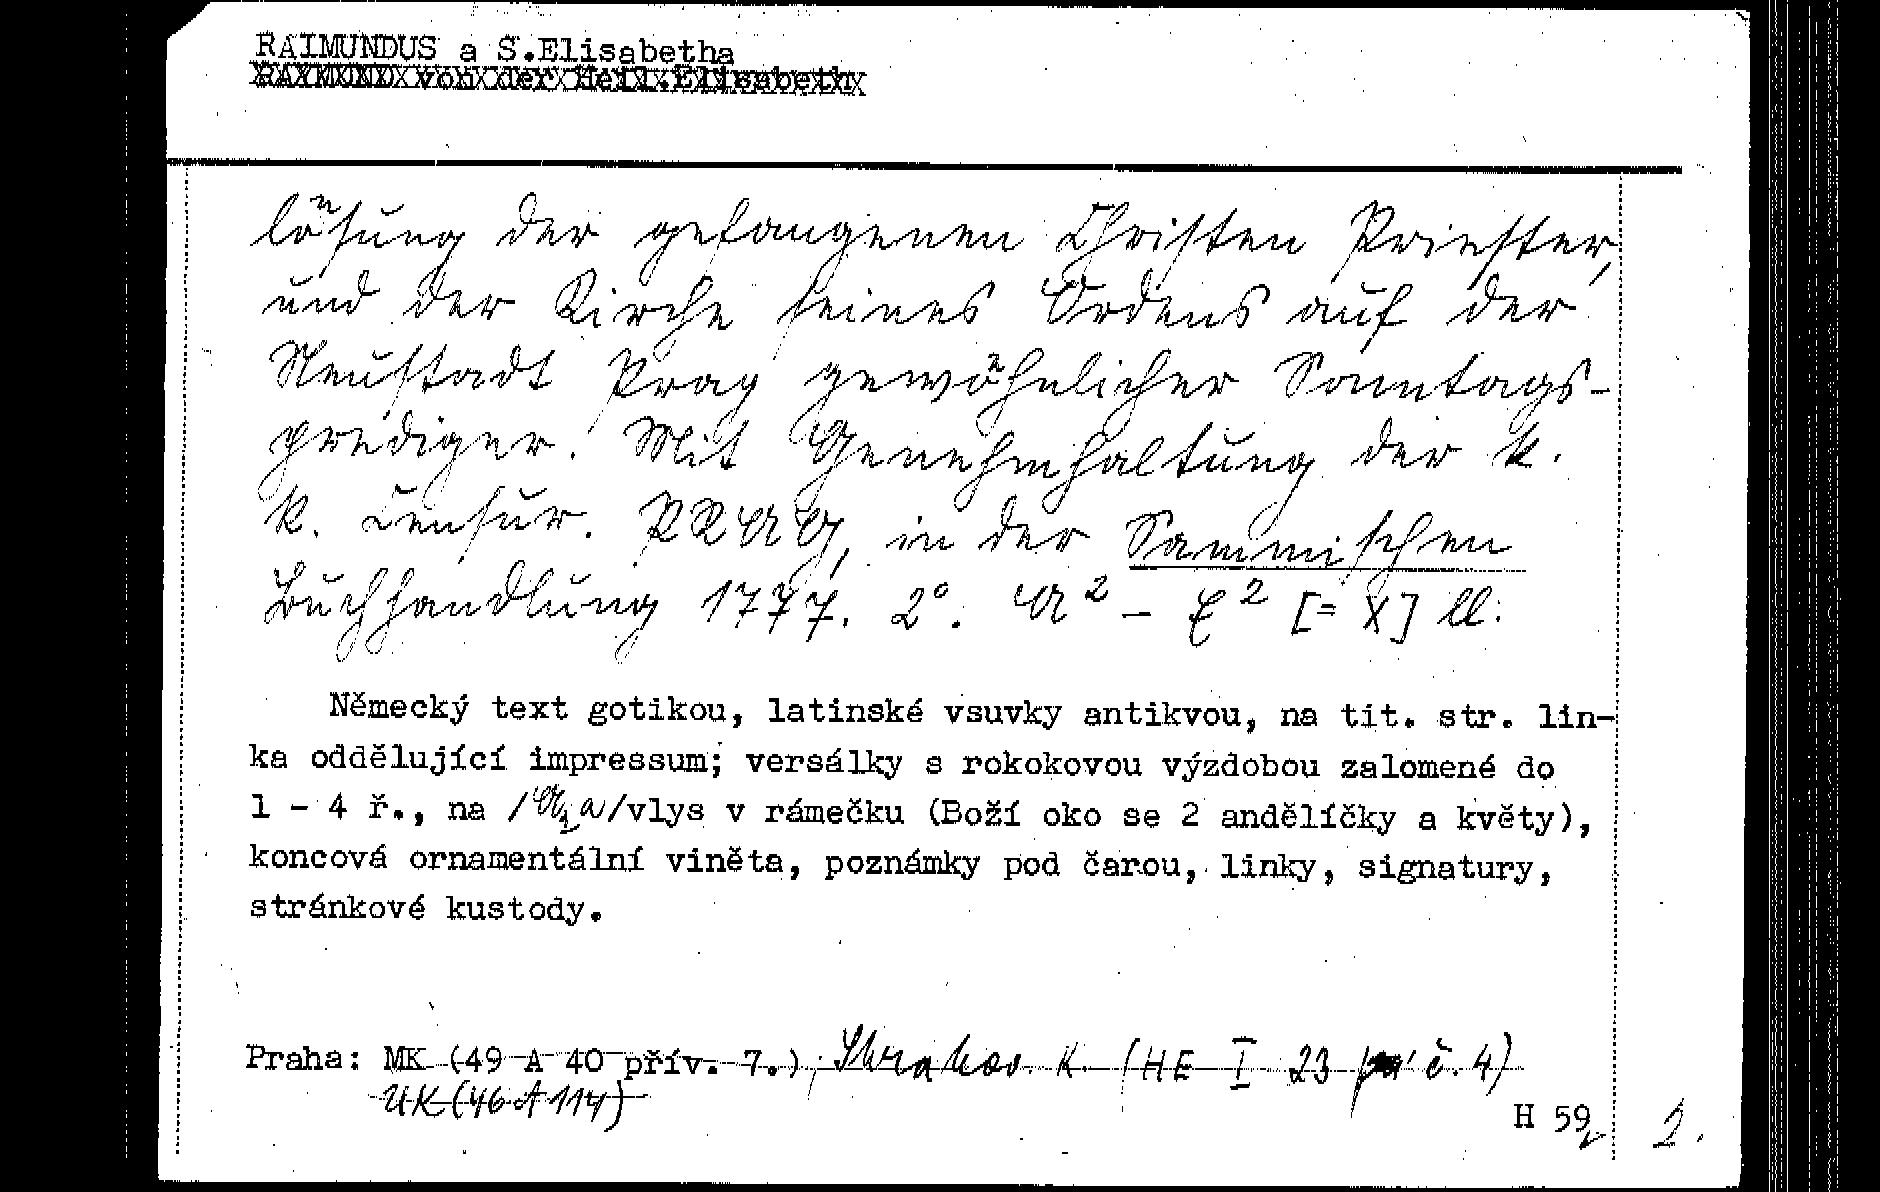 RAIMUNDUS a S.Elisabetha
RAYMUND von der Heil.Elisabeth
löͤsung der gefangenen Christen Priester,
und der Kirche seines Ordens auf der
Neustadt Prag gewöͤhnlicher Sonntags-
prediger. Mit Genehmhaltung der k.
k. Censur. PRAG, in der Sammischen
Buchhandlung 1777. 2°. A² – E² [= X] ll.
Německý text gotikou, latinské vsuvky antikvou, na tit. str. lin-
ka oddělující impressum; versálky s rokokovou výzdobou zalomené do
1 - 4 ř., na /A₂a/vlys v rámečku (Boží oko se 2 andělíčky a květy),
koncová ornamentální viněta, poznámky pod čarou, linky, signatury,
stránkové kustody.
Praha: MK (49 A 40 přív. 7.), Strahov. K. (HE I 23 č. 4)
UK (46 A 114)
H 59
2.